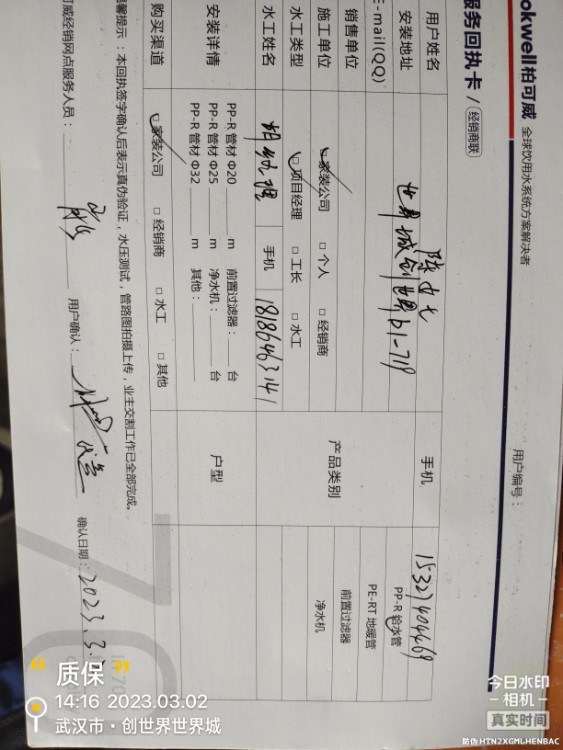 ookwell柏可威 全球饮用水系统方案解决者
服务回执卡 / 经销商联
用户编号：
用户姓名 手机 15327404469
安装地址 世界城创世界b1-719
E-mail(QQ)
销售单位
施工单位 家装公司 个人 经销商
水工类型 项目经理 工长 水工
水工姓名 胡 手机 18186463141
产品类别 PP-R 给水管
PE-RT 地暖管
前置过滤器
净水机
安装详情 PP-R 管材 Φ20 m 前置过滤器： 台
PP-R 管材 Φ25 m 净水机： 台
PP-R 管材 Φ32 m 其他：
户型
购买渠道 家装公司 经销商 水工 其他
温馨提示：本回执签字确认后表示真伪验证，水压测试，管路图拍摄上传，业主交割工作已全部完成。
可威经销网点服务人员： 用户确认： 确认日期：2023.3.
质保
14:16 2023.03.02
武汉市·创世界世界城
今日水印
相机
真实时间
防伪 H1N2XGMLHENBAC